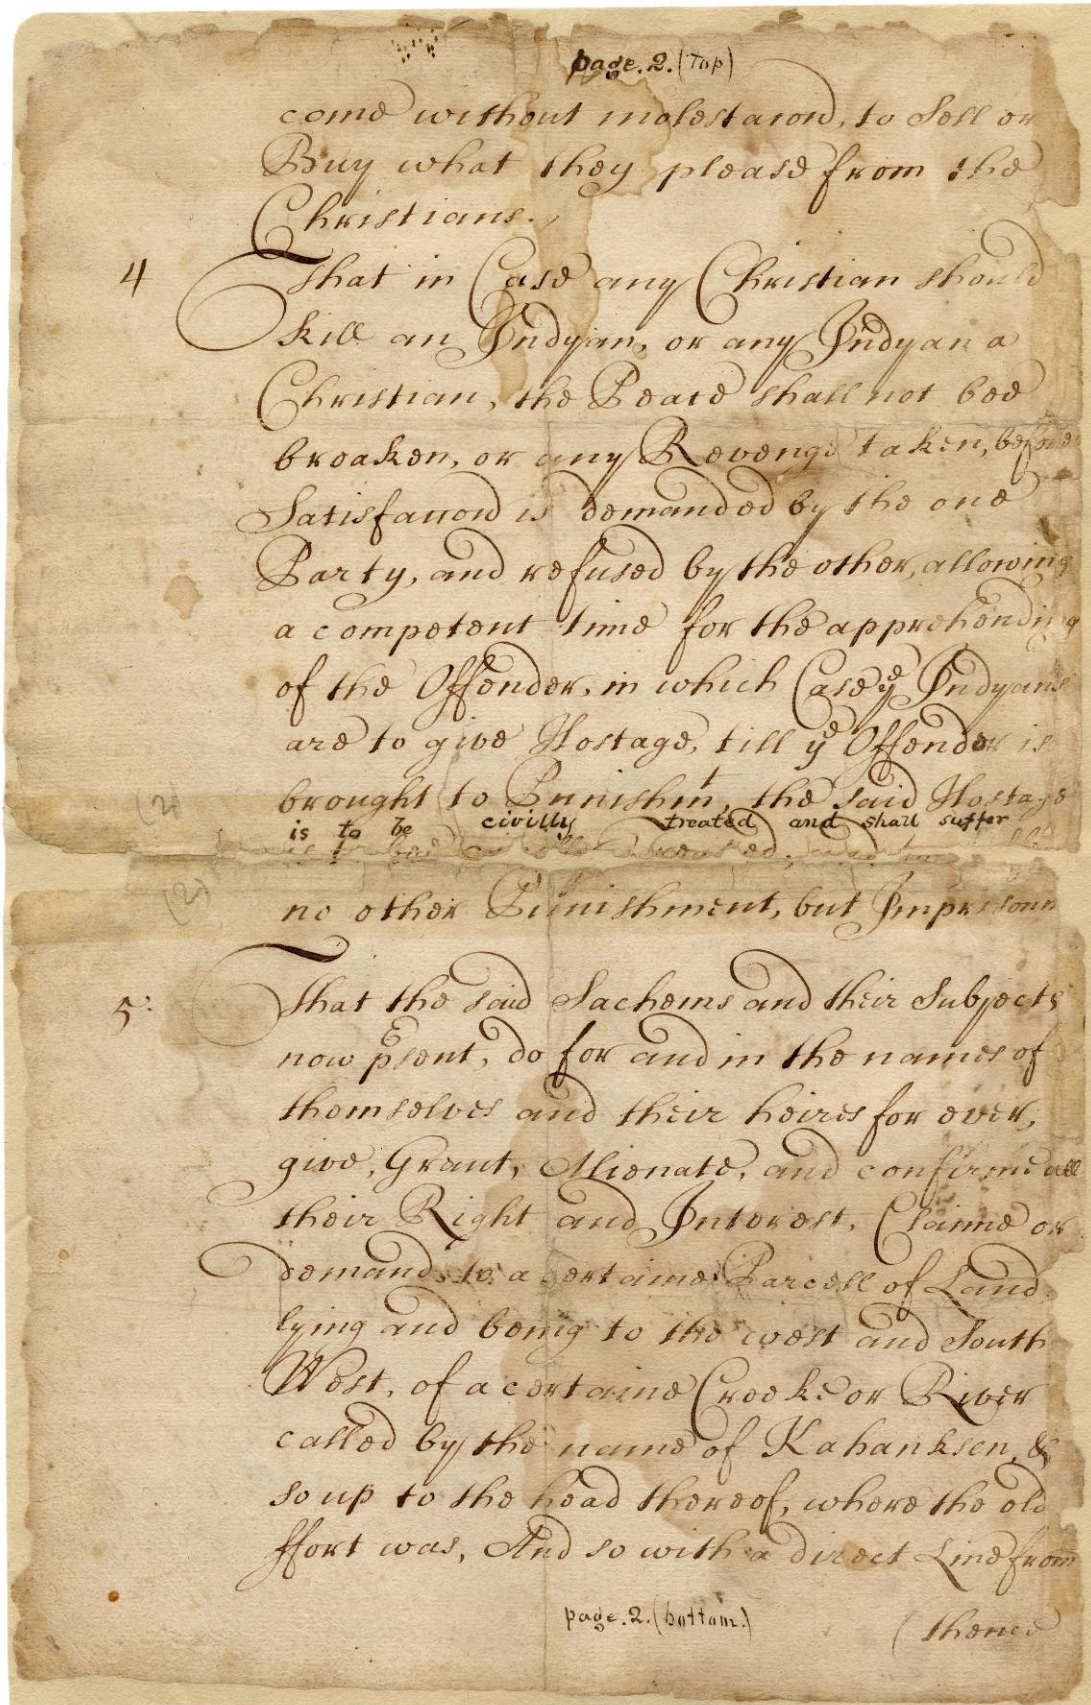 page. 2. (Top)
come without molestacon, to Sell or
Buy what they please from the
Christians.
4 That in Case any Christian should
kill an Indyan, or any Indyan a
Christian, the Peace shall not bee
broaken, or any Revenge taken, before
Satisfaccon is demanded by the one
Party, and refused by the other, allowing
a competent time for the apprehending
of the Offender, in which Case ye Indyans
are to give Hostage, till ye Offender is
brought to Punishmt, the said Hostage
(2)
is to be civilly treated and shall suffer
(2)
no other Punishment, but Imprisonm
5: That the said Sachems and their Subjects
now psent, do for and in the names of
themselves and their heires for ever,
give, Grant, Alienate, and confirme all
their Right and Interest, Claime or
demand, to a certaine Parcell of Land,
lying and being to the west and South
West, of a certaine Creeke or River
called by the name of Kahanksen, &
so up to the head thereof, where the old
ffort was, And so with a direct Line from
page. 2. (bottom.)
(thence